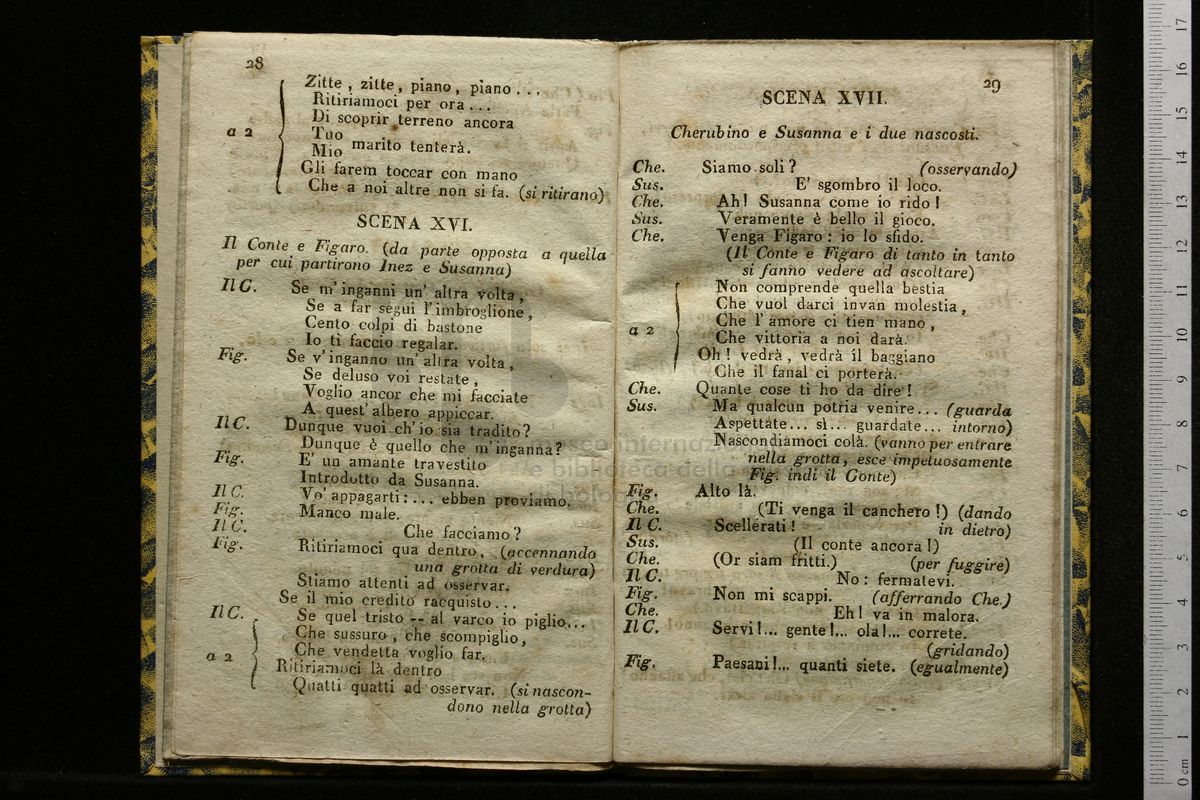 28
Zitte , zitte, piano, piano ...
Ritiriamoci per ora ...
Di scoprir terreno ancora
a 2 Tuo
Mio marito tenterà.
Gli farem toccar con mano
Che a noi altre non si fa. (si ritirano)
SCENA XVI.
Il Conte e Figaro. (da parte opposta a quella
per cui partirono Inez e Susanna)
Il C. Se m'inganni un' altra volta ,
Se a far segui l'imbroglione ,
Cento colpi di bastone
Io ti faccio regalar.
Fig. Se v'inganno un' altra volta ,
Se deluso voi restate ,
Voglio ancor che mi facciate
A quest' albero appiccar.
Il C. Dunque vuoi ch'io sia tradito?
Dunque è quello che m'inganna?
Fig. E' un amante travestito
Introdotto da Susanna.
Il C. Vo' appagarti: ... ebben proviamo.
Fig. Manco male.
Il C. Che facciamo?
Fig. Ritiriamoci qua dentro, (accennando
una grotta di verdura)
Stiamo attenti ad osservar.
Se il mio credito racquisto ...
Il C. Se quel tristo -- al varco io piglio...
Che sussuro, che scompiglio,
a 2 Che vendetta voglio far.
Ritiriamoci là dentro
Quatti quatti ad osservar. (si nascon-
dono nella grotta)
29
SCENA XVII.
Cherubino e Susanna e i due nascosti.
Che. Siamo soli? (osservando)
Sus. E' sgombro il loco.
Che. Ah! Susanna come io rido!
Sus. Veramente è bello il gioco.
Che. Venga Figaro: io lo sfido.
(Il Conte e Figaro di tanto in tanto
si fanno vedere ad ascoltare)
Non comprende quella bestia
Che vuol darci invan molestia,
a 2 Che l'amore ci tien mano,
Che vittoria a noi darà.
Oh! vedrà, vedrà il baggiano
Che il fanal ci porterà.
Che. Quante cose ti ho da dire!
Sus. Ma qualcun potria venire... (guarda
Aspettate... sì... guardate... intorno)
Nascondiamoci colà. (vanno per entrare
nella grotta, esce impetuosamente
Fig. indi il Conte)
Fig. Alto là.
Che. (Ti venga il canchero!) (dando
Il C. Scellerati! in dietro)
Sus. (Il conte ancora!)
Che. (Or siam fritti.) (per fuggire)
Il C. No: fermatevi.
Fig. Non mi scappi. (afferrando Che.)
Che. Eh! va in malora.
Il C. Servi!... gente!... ola!... correte.
(gridando)
Fig. Paesani!... quanti siete. (egualmente)
museo internaz
e biblioteca della
bolo
0 cm 1 2 3 4 5 6 7 8 9 10 11 12 13 14 15 16 17